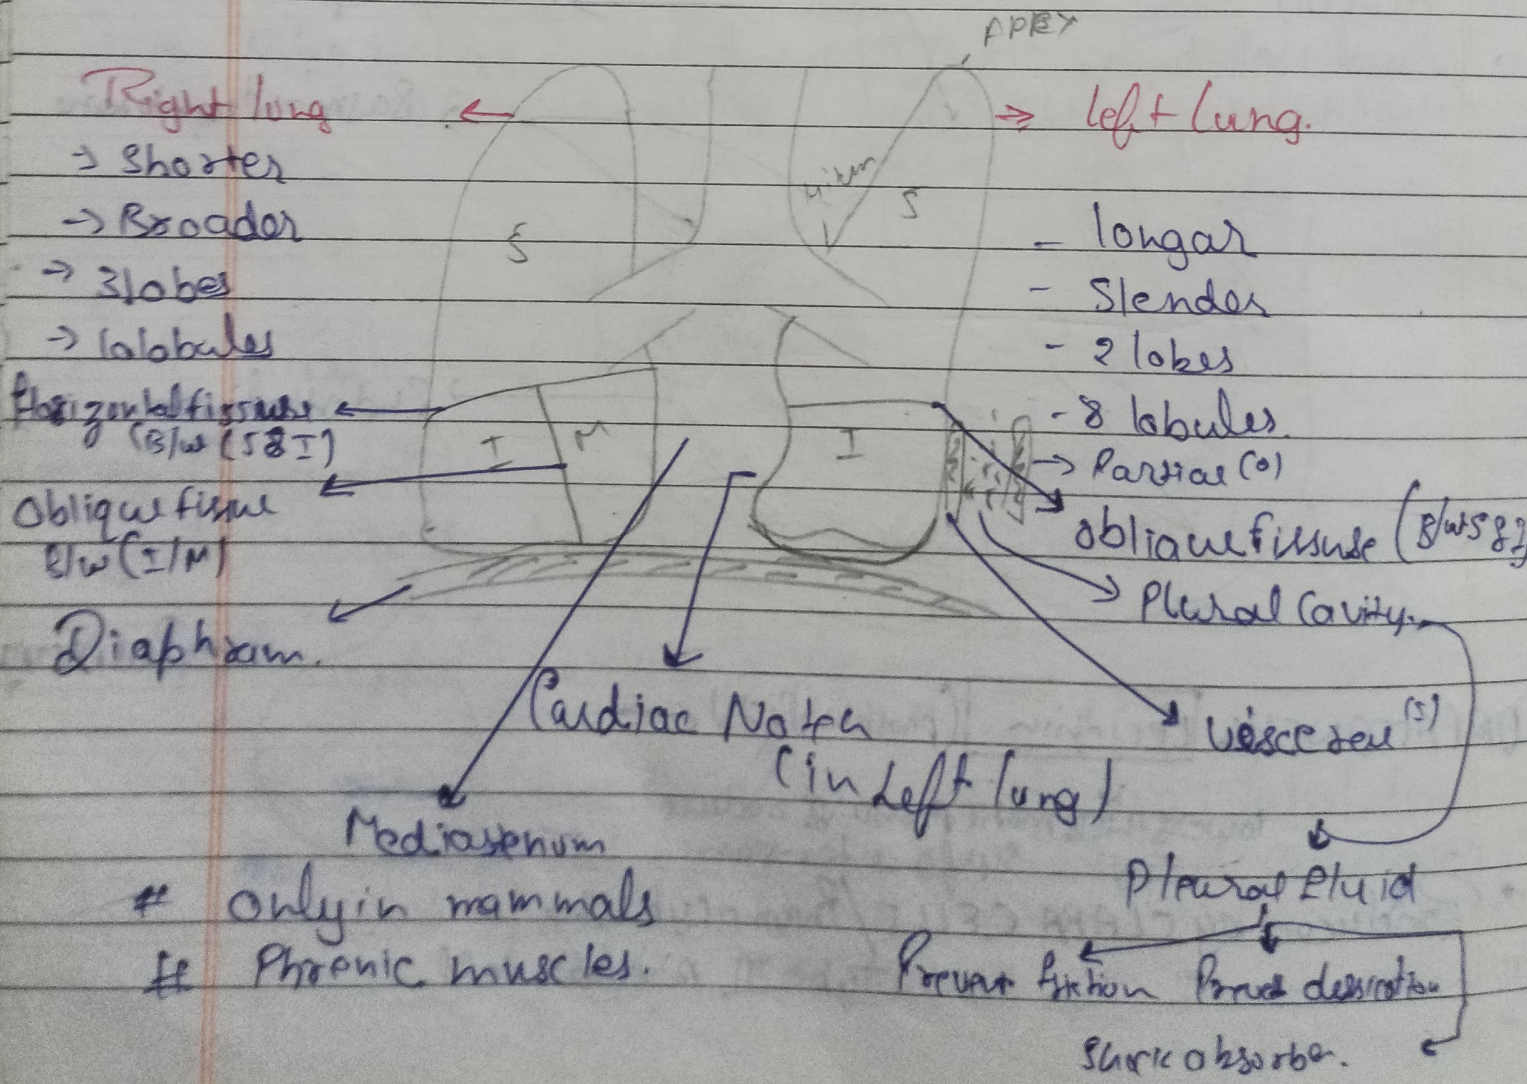 APEX
Right lung
→ Shorter
→ Broader
→ 3 lobes
→ 10 lobules
Horizontal fissure
(B/w (S & I)
Oblique fissue
B/w (I/M)
Diaphram.
S
I
M
Hilum
S
I
left lung.
- longar
- Slender
- 2 lobes
- 8 lobules.
→ Partial (o)
Obliaue fissuse (B/w S & I
Plural Cavity
visceral (I)
Cardiac Notch
(in Left lung)
Mediastenum
# Only in mammals
# Phrenic muscles.
Pleural fluid
Prevent friction
desiccation
Shock absorber.